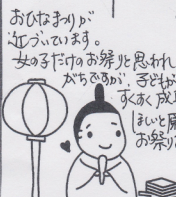 おひなまつりが
近づいています。
女の子だけのお祭りと思われ
がちですが、子どもが
すくすく成
ほしいと願
お祭り